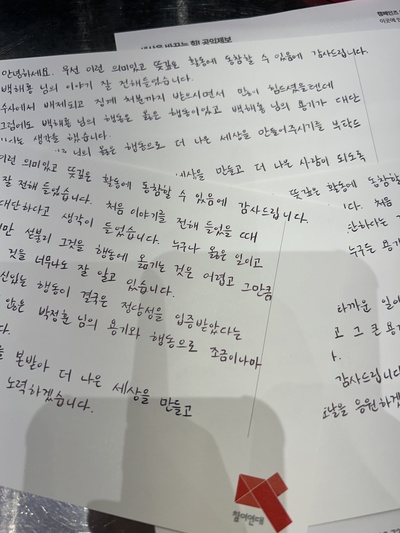 캠페인즈
세상을 바꾸는 힘! 공익제보
안녕하세요. 우선 이런 의미있고 뜻깊은 활동에 동참할 수 있음에 감사드립니다.
백해룡 님의 이야기 잘 전해들었습니다.
수사에서 배제되고 징계 처분까지 받으시면서 많이 힘드셨을텐데
그럼에도 백해룡 님의 행동은 옳은 행동이었고 백해룡 님의 용기가 대단
생각을 했습니다.
님의 옳은 행동으로 더 나은 세상을 만들어주시기를 부탁드
세상을 만들고 더 나은 사람이 되도록
이런 의미있고 뜻깊은 활동에 동참할 수 있음에 감사드립니다.
잘 전해 들었습니다. 처음 이야기를 전해 들었을 때
대단하다고 생각이 들었습니다. 누구나 옳은 일이고
만 섣불리 그것을 행동에 옮기는 것은 어렵고 그만큼
것을 너무나도 잘 알고 있습니다.
신있는 행동이 결국은 정당성을 입증받았다는
않은 박정훈 님의 용기와 행동으로 조금이나마
다.
본받아 더 나은 세상을 만들고
노력하겠습니다.
뜻깊은 활동에 동참할
다. 처음
단하다는
누구든 용기
타까운 일이
고 그 큰 용기
감사드립니다
오날을 응원하겠
참여연대